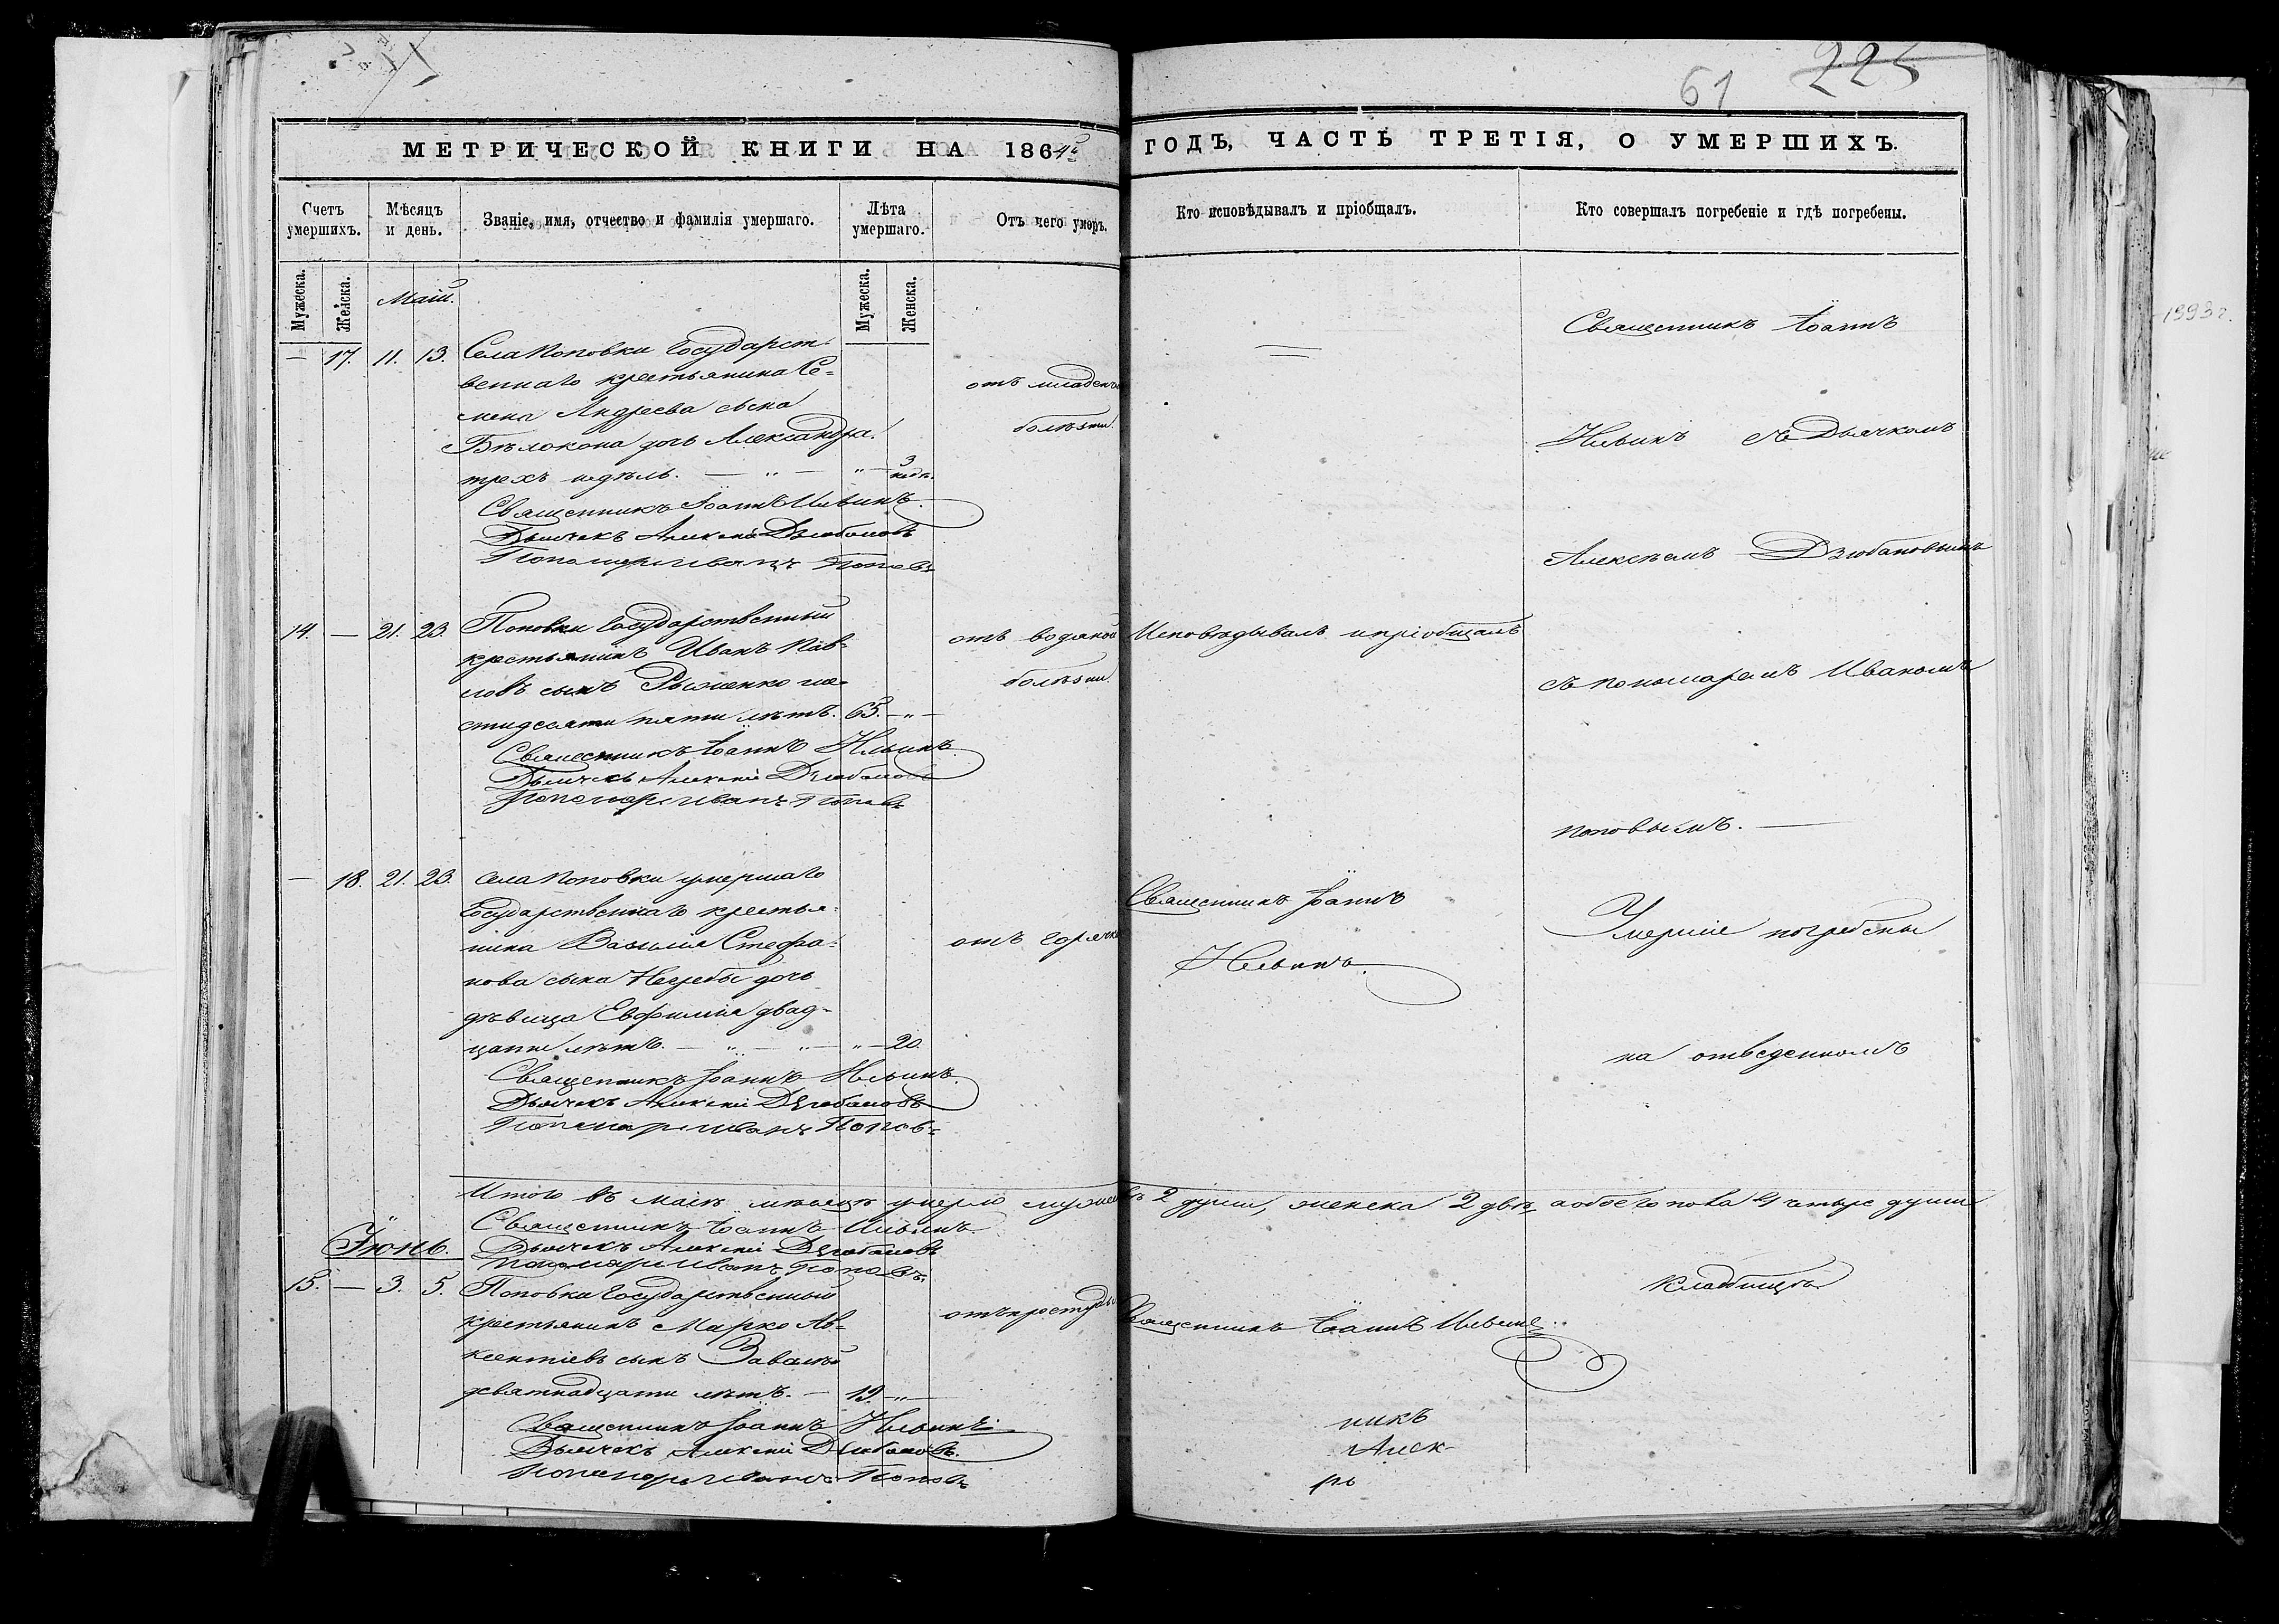 61 225
МЕТРИЧЕСКОЙ КНИГИ НА 1864й ГОДЪ, ЧАСТЬ ТРЕТІЯ, О УМЕРШИХЪ.
Счетъ умершихъ.
Мѣсяцъ и день.
Званіе, имя, отчество и фамилія умершаго.
Лѣта умершаго.
Отъ чего умеръ.
Кто исповѣдывалъ и пріобщалъ.
Кто совершалъ погребеніе и гдѣ погребены.
Мужеска.
Женска.
Маій.
Мужеска.
Женска.
— 17. 11. 13. Села Поповки Государст-
веннаго крестьянина Се-
мена Андреева сына
Бѣлокона дочь Александра
трехъ недѣль. — „ — „ — 3 нед.
отъ младенч
болѣзни.
Священникъ Іоаннъ Ильинъ.
Дьячекъ Алексій Дзюбановъ
Пономарь Иванъ Поповъ
14. — 21. 23. Поповки Государственный
крестьянинъ Иванъ Пав-
ловъ сынъ Рыженко ше-
стидесяти пяти лѣтъ. 65. — „ —
отъ водяной
болѣзни.
Исповѣдывалъ и пріобщалъ
Священникъ Іоаннъ Ильинъ
Дьячекъ Алексій Дзюбановъ
Пономарь Иванъ Поповъ
— 18. 21. 23. Села Поповки умершаго
Государственнаго крестья-
нина Василія Стефа-
нова сына Негребы дочь
дѣвица Евфимія двад-
цати лѣтъ. — „ — „ — „ — 20.
отъ горячк
Священникъ Іоаннъ
Ильинъ.
Священникъ Іоаннъ Ильинъ.
Дьячекъ Алексій Дзюбановъ
Пономарь Иванъ Поповъ
Итого въ Маіѣ мѣсяцѣ умерло мужеска 2 души, женска 2 двѣ, а обоего пола 4 четыре души
Священникъ Іоаннъ Ильинъ
Дьячекъ Алексій Дзюбановъ
Пономарь Иванъ Поповъ
Іюнь.
15. — 3. 5. Поповки Государственный
крестьянинъ Марко Ав-
ксентіевъ сынъ
девятнадцати лѣтъ. — 19. — „ —
отъ простуды
Священникъ Іоаннъ Ильинъ
Священникъ Іоаннъ Ильинъ
Дьячекъ Алексій Дзюбановъ.
Пономарь Иванъ Поповъ
никъ
Алек-
рь
Священникъ Іоаннъ
Ильинъ съ Дьячкомъ
Алексѣемъ Дзюбановымъ
съ пономаремъ Иваномъ
Поповымъ. —
Умершіе погребены
на отведенномъ
кладбищѣ
1993г.